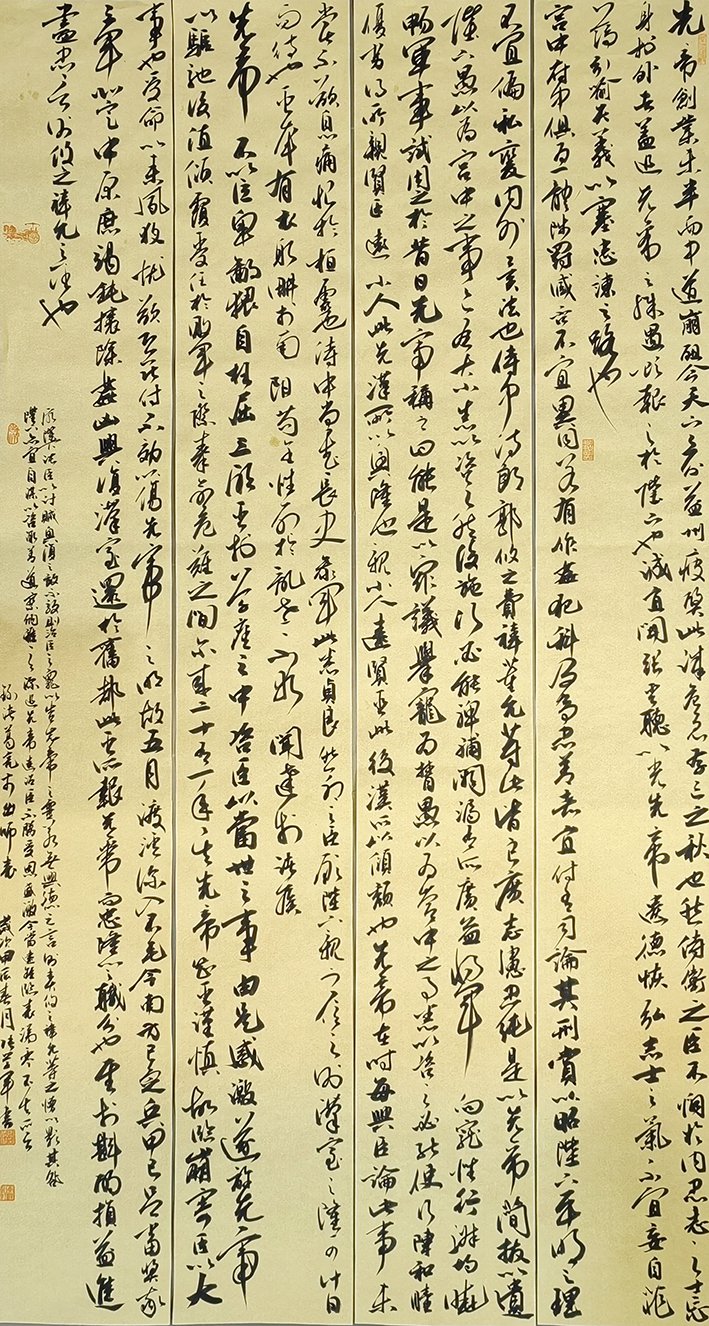 先帝創業未半而中道崩殂今天下三分益州疲弊此誠危急存亡之秋也然侍衛之臣不懈於內忠志之士忘
身於外者蓋追先帝之殊遇欲報之於陛下也誠宜開張聖聽以光先帝遺德恢弘志士之氣不宜妄自菲
薄引喻失義以塞忠諫之路也
宮中府中俱為一體陟罰臧否不宜異同若有作姦犯科及為忠善者宜付有司論其刑賞以昭陛下平明之理
不宜偏私使內外異法也侍中侍郎郭攸之費禕董允等此皆良實志慮忠純是以先帝簡拔以遺
陛下愚以為宮中之事事無大小悉以咨之然後施行必能裨補闕漏有所廣益將軍向寵性行淑均曉
暢軍事試用之於昔日先帝稱之曰能是以眾議舉寵為督愚以為營中之事悉以咨之必能使行陣和睦
優劣得所親賢臣遠小人此先漢所以興隆也親小人遠賢臣此後漢所以傾頹也先帝在時每與臣論此事未
嘗不歎息痛恨於桓靈也侍中尚書長史參軍此悉貞良死節之臣願陛下親之信之則漢室之隆可計日
而待也臣本布衣躬耕於南陽苟全性命於亂世不求聞達於諸侯
先帝不以臣卑鄙猥自枉屈三顧臣於草廬之中咨臣以當世之事由是感激遂許先帝
以驅馳後值傾覆受任於敗軍之際奉命危難之間爾來二十有一年矣先帝知臣謹慎故臨崩寄臣以大
事也受命以來夙夜憂歎恐託付不效以傷先帝之明故五月渡瀘深入不毛今南方已定兵甲已足當獎率
三軍北定中原庶竭駑鈍攘除姦凶興復漢室還於舊都此臣所以報先帝而忠陛下之職分也至於斟酌損益進
盡忠言則攸之禕允之任也
願陛下託臣以討賊興復之效不效則治臣之罪以告先帝之靈若無興德之言則責攸之禕允等之慢以彰其咎
陛下亦宜自謀以諮諏善道察納雅言深追先帝遺詔臣不勝受恩感激今當遠離臨表涕零不知所言
錄諸葛亮前出師表 歲次甲辰春月 軍書